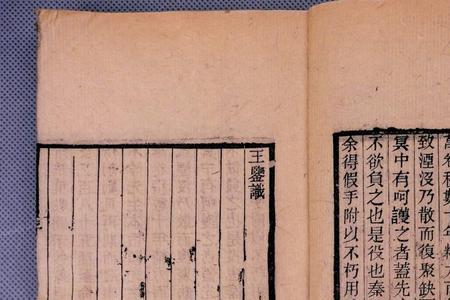 致湮沒乃散而復聚缺
冥中有呵護之者蓋先
不欲負之也是役也秦
余得假手附以不朽用
王鑒識